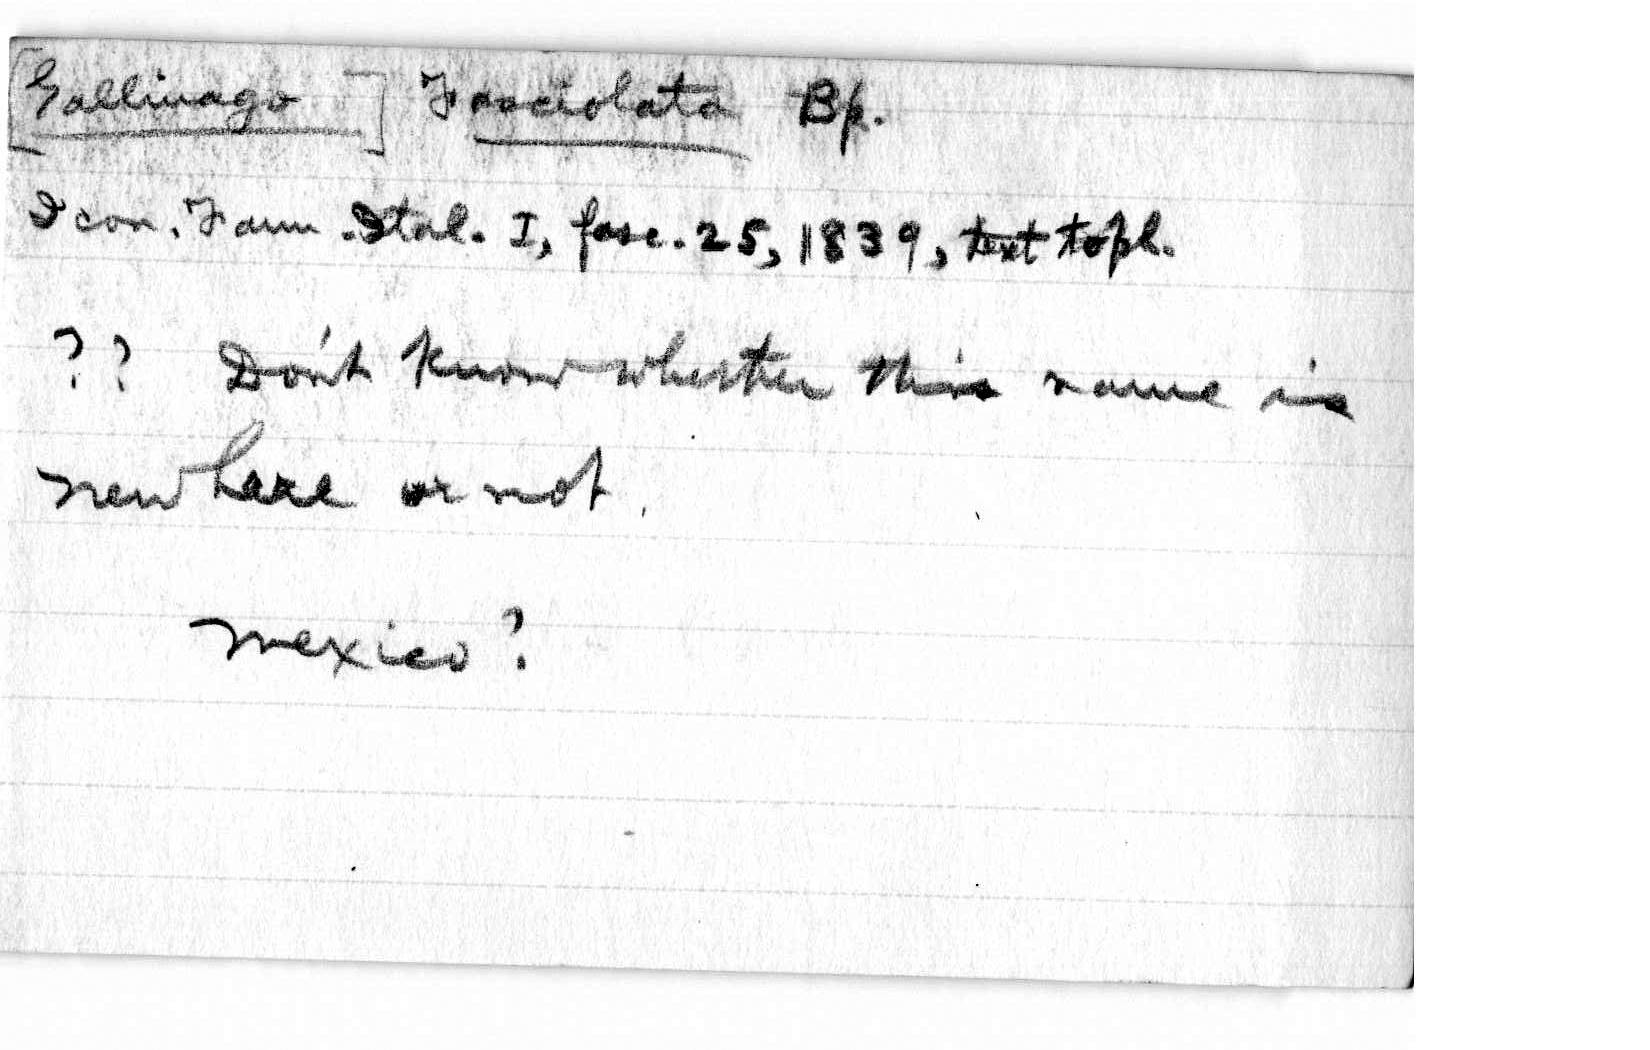 [Gallinago] Fasciolata Bp.
Icon. Faun. Ital. I, fasc. 25, 1839, text to pl.
?? Don't know whether this name is
new here or not.
Mexico?